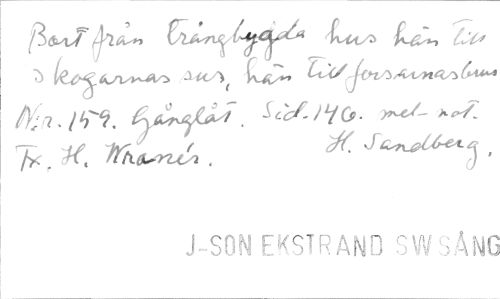 Bort från trångbygda hus hän till
skogarnas sus, hän till forsarnas brus
N:r. 159. Gånglåt. Sid. 140. mel-not.
Tx. H. Wranér. H. Sandberg.
J-SON EKSTRAND SW SÅNG